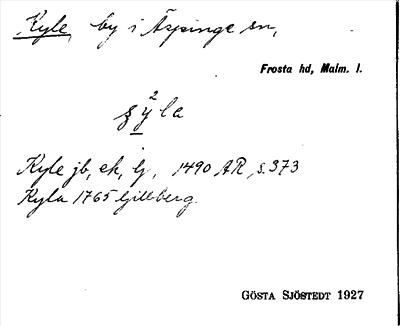 Kyle, by i Äspinge sn,
Frosta hd, Malm. l.
Kyle jb, ek, lj, 1490 ÄR, s. 373
Kyla 1765 Gillberg.
GÖSTA SJÖSTEDT 1927